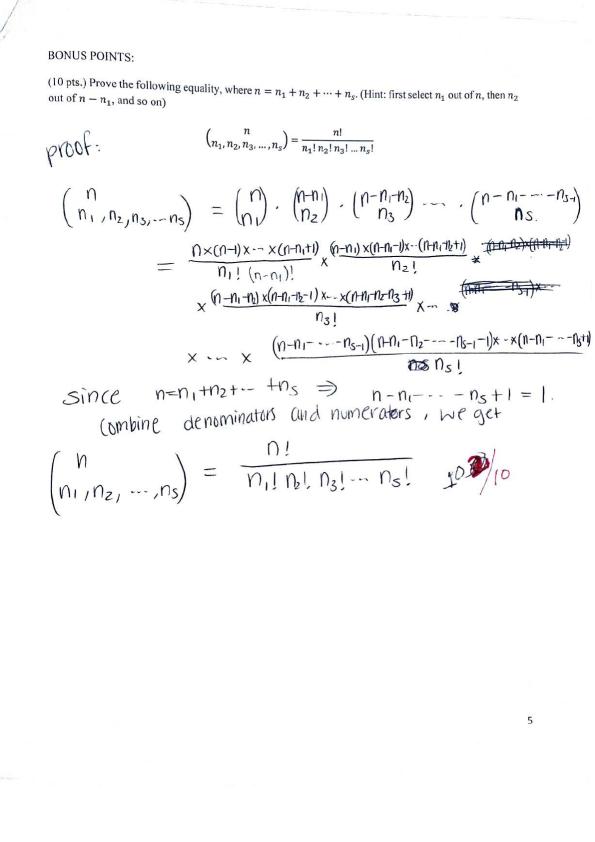 BONUS POINTS:
(10 pts.) Prove the following equality, where n = n₁ + n₂ + ⋯ + nₛ. (Hint: first select n₁ out of n, then n₂
out of n − n₁, and so on)
(n / n₁, n₂, n₃, …, nₛ) = n! / n₁! n₂! n₃! … nₛ!
proof:
(n / n₁, n₂, n₃, ⋯ nₛ) = (n / n₁) · (n-n₁ / n₂) · (n-n₁-n₂ / n₃) ⋯ · (n-n₁-⋯-nₛ₋₁ / nₛ)
= n×(n-1)×⋯×(n-n₁+1) / n₁! (n-n₁)! × (n-n₁)×(n-n₁-1)×⋯(n-n₁-n₂+1) / n₂! *
× (n-n₁-n₂)×(n-n₁-n₂-1)×⋯×(n-n₁-n₂-n₃+1) / n₃! ×⋯
×⋯× (n-n₁-⋯-nₛ₋₁)(n-n₁-n₂-⋯-nₛ₋₁-1)×⋯×(n-n₁-⋯-nₛ+1) / nₛ!
since n=n₁+n₂+⋯+nₛ ⇒ n-n₁-⋯-nₛ+1 = 1.
Combine denominators and numerators, we get
(n / n₁, n₂, ⋯, nₛ) = n! / n₁! n₂! n₃! ⋯ nₛ!
10 /10
5